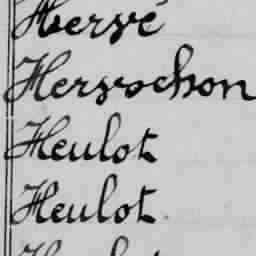 Hervé
Hervochon
Heulot
Heulot